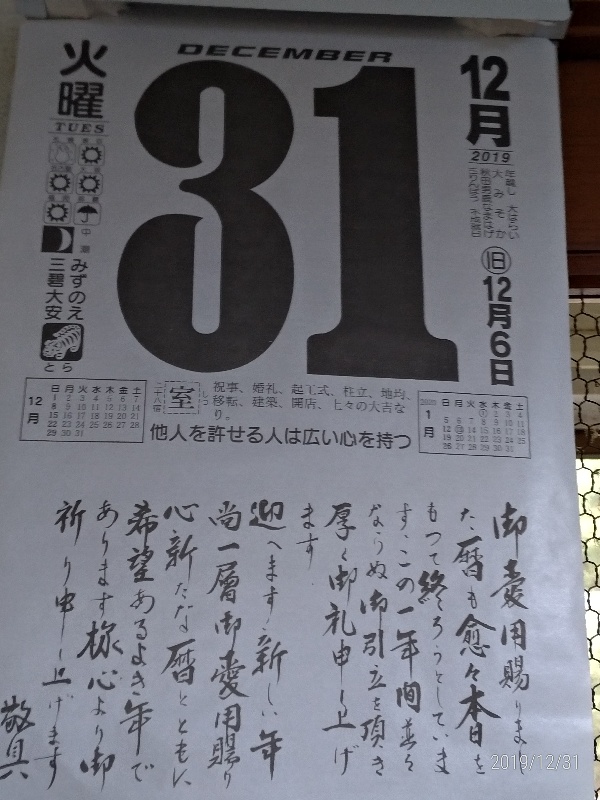 DECEMBER
火曜
TUES
31
12月
2019
年越し 大はらい
大みそか
旧12月6日
みずのえ
三碧大安
とら
中潮
12月
日 月 火 水 木 金 土
1 2 3 4 5 6 7
8 9 10 11 12 13 14
15 16 17 18 19 20 21
22 23 24 25 26 27 28
29 30 31
二十八宿
室
しつ
祝事、婚礼、起工式、柱立、地均、
移転、建築、開店、七々の大吉な
り。
他人を許せる人は広い心を持つ
2020
1月
日 月 火 水 木 金 土
1 2 3 4
5 6 7 8 9 10 11
12 13 14 15 16 17 18
19 20 21 22 23 24 25
26 27 28 29 30 31
御愛用賜りまし
た暦も愈々本日を
もつて終ろうとしていま
す、この一年間並々
ならぬ御引立を頂き
厚く御礼申し上げ
ます
迎へます新しい年
尚一層御愛用賜り
心新たな暦とともに
希望あるよき年で
あります様心より御
祈り申し上げます
敬具
2019/12/31